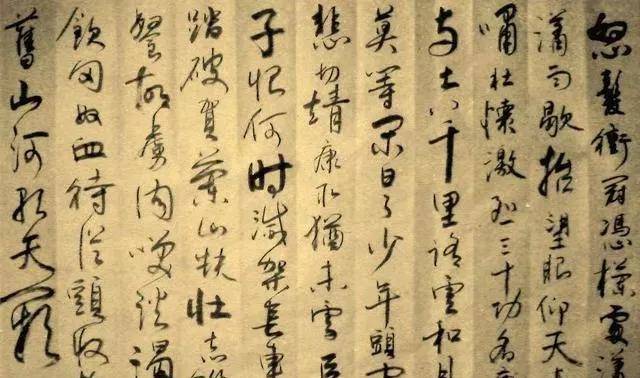 怒髮衝冠憑欄處瀟
瀟雨歇抬望眼仰天
嘯壯懷激烈三十功名
与土八千里路雲和月
莫等閑白了少年頭空
悲切靖康耻猶未雪臣
子恨何时滅架長車
踏破賀蘭山缺壯志
餐胡虜肉笑談渴
飲匈奴血待從頭收
舊山河朝天闕